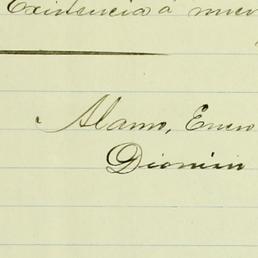 Existencia á nuev
Alamo, Enero
Dionisi